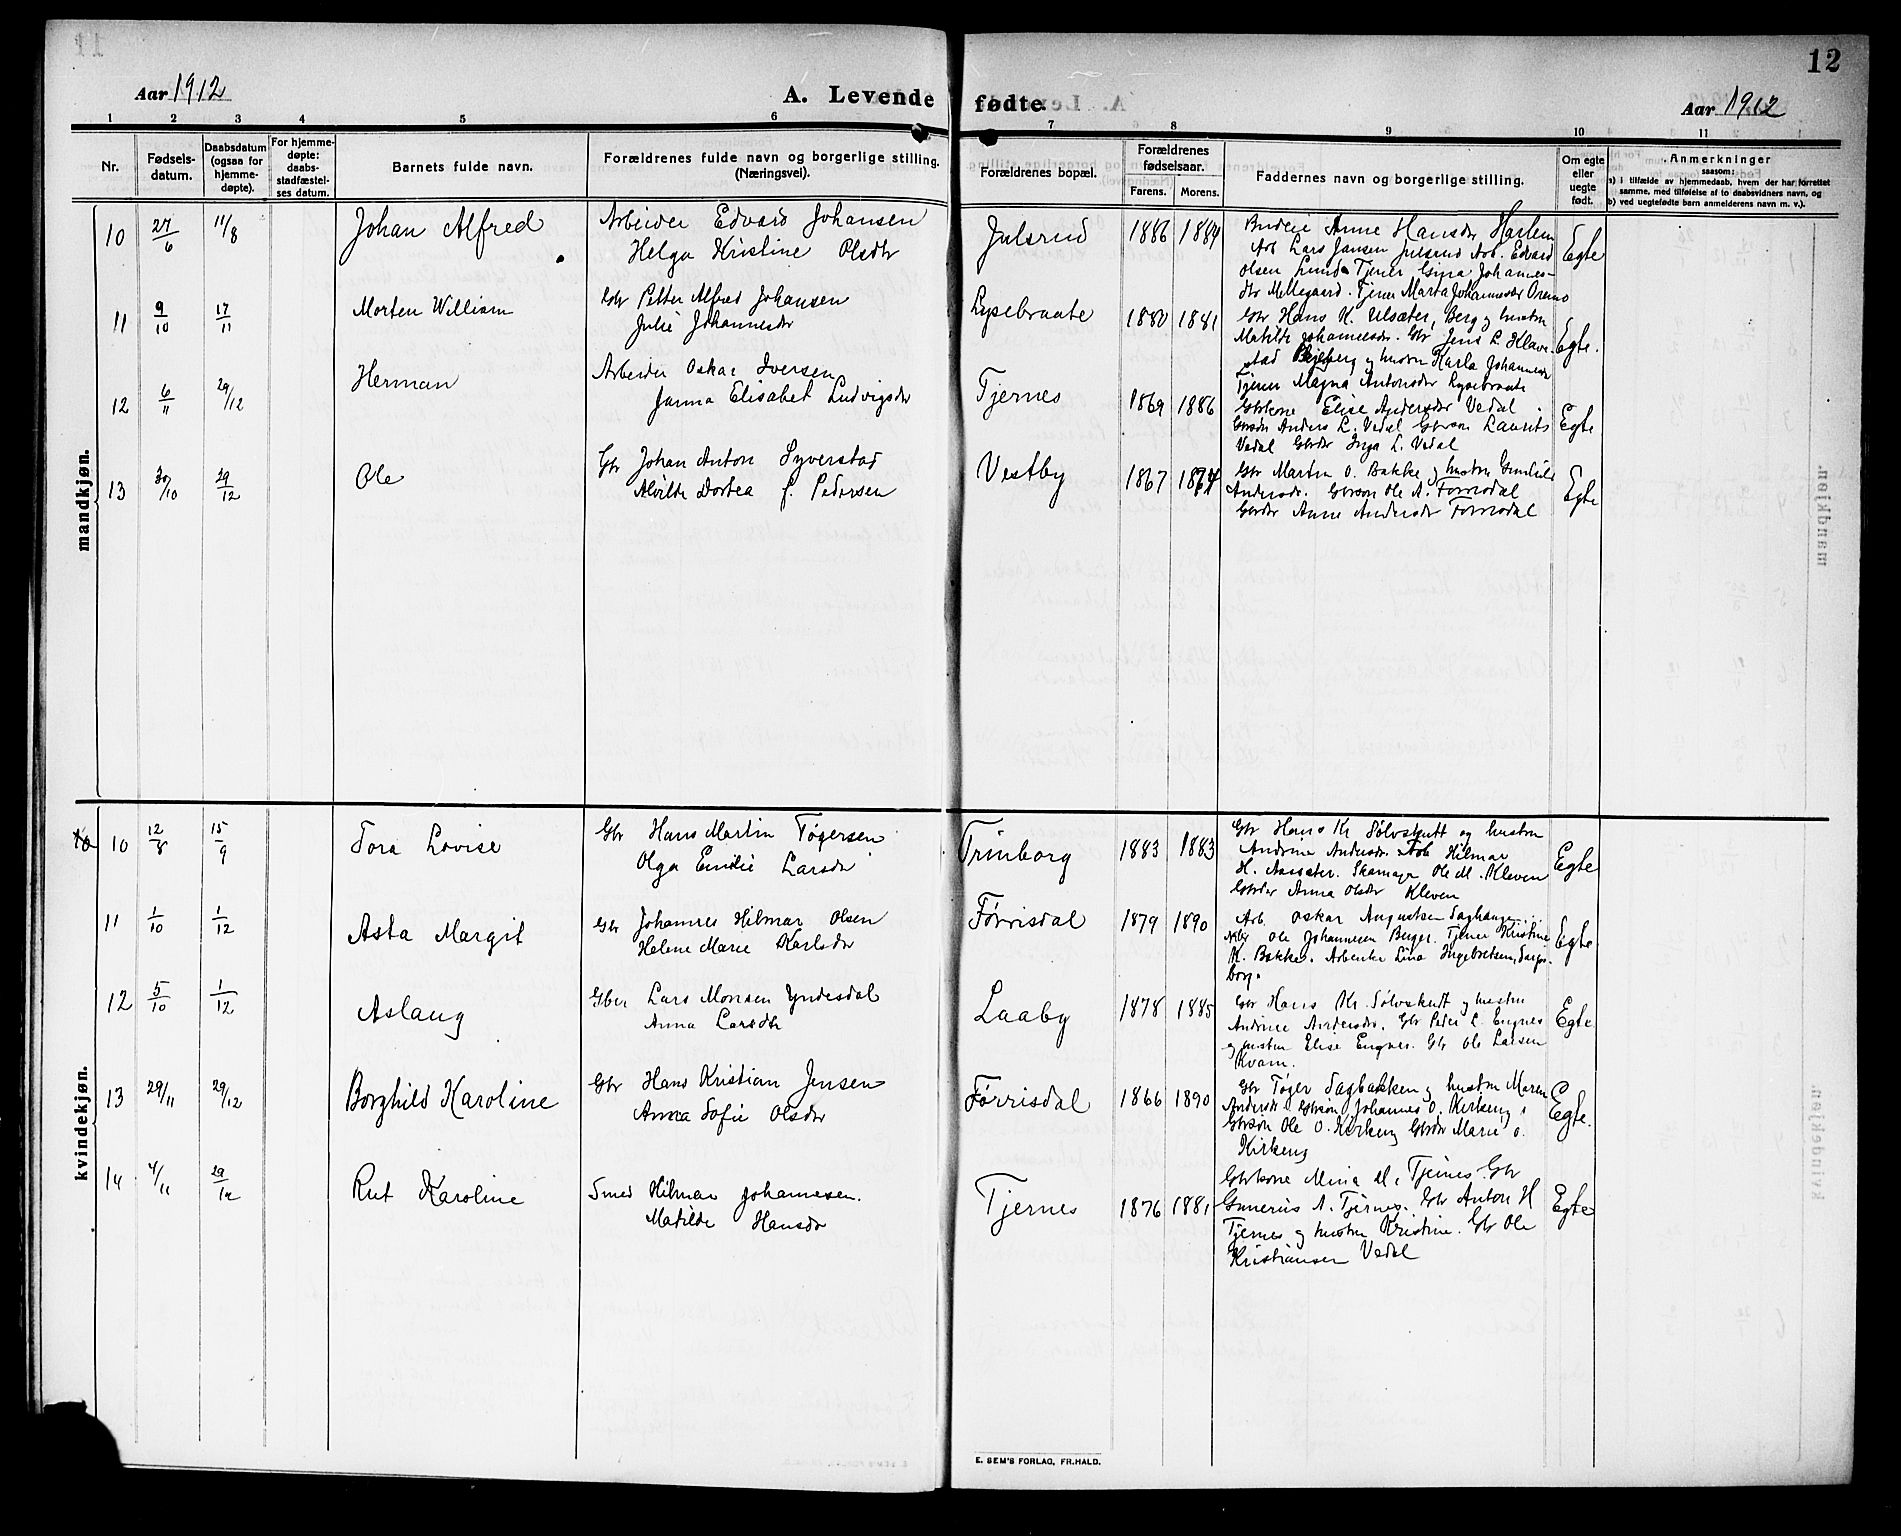 12
Aar 1912
A. Levende fødte.
Aar 1912
1 2 3 4 5 6 7 8 9 10 11
Nr.
Fødsels-
datum.
Daabsdatum
(ogsaa for
hjemme-
døpte).
For hjemme-
døpte:
daabs-
stadfæstel-
ses datum.
Barnets fulde navn.
Forældrenes fulde navn og borgerlige stilling.
(Næringsvei).
Forældrenes bopæl.
Forældrenes
fødselsaar.
Farens. Morens.
Faddernes navn og borgerlige stilling.
Om egte
eller
uegte
født.
Anmerkninger
saasom:
a) i tilfælde av hjemmedaab, hvem der har forrettet
samme, med tilføielse af to daabsvidners navn, og
b) ved uegtefødte barn anmelderens navn m. v.).
mandkjøn.
10 27/6 11/8 Johan Alfred
Arbeider Edvard Johansen
Helga Kristine Olsdtr
Julsrud 1886 1884
Budeie Anne Hansdr Harlem
Arb Lars Jansen Julsrud Arb. Edvard
Olsen Lunde Tjener Gina Johannes-
dtr Mellegaard. Tjener Marta Johannesdr Oremo
Egte
11 9/10 17/11 Morten William
Gbr Petter Alfred Johansen
Julie Johannesdr
Lysebraate 1880 1881
Gbr Hans K. Ulsæter, Berg og hustru
Matilde Johannesdr. Gbr Jens L. Klave-
stad Skjeberg og hustru Karla Johannesdr
Tjener Magna Antonsdr Lysebraate
Egte.
12 6/11 29/12 Herman
Arbeider Oskar Iversen
Janna Elisabet Ludvigsdr
Tjernes 1869 1886
Gbrkone Elise Andersdr Vedal
Gbrsøn Anders L. Vedal Gbrsøn Laurits
Vedal Gbrdr Inga L. Vedal
Egte
13 30/10 29/12 Ole
Gbr Johan Anton Syverstad
Alvilde Dortea f. Pedersen
Vestby 1867 1874
Gbr Martin O. Bakke og hustru Gunhild
Andersdr. Gbrsøn Ole A. Førrisdal
Gbrdr Anne Andersdr Førrisdal
Egte
kvindekjøn.
10 10 12/8 15/9 Tora Lovise
Gbr Hans Martin Tøgersen
Olga Emilie Larsdr
Trinborg 1883 1883
Gbr Hans Kr Sølvskudt og hustru
Andrine Andersdr. Arb Hilmar
H. Aarsæter. Skomager Ole M. Kleven
Gbrdr Anna Olsdr Kleven
Egte
11 1/10 1/12 Asta Margit
Gbr Johannes Hilmar Olsen
Helene Marie Karlsdr
Førrisdal 1879 1890
Arb. Oskar Augustsen Saghaugen
Ole Johannesen Berger. Tjener Kristine
K. Bakke. Arbeiderske Lina Ingebretsen, Sarps-
borg.
Egte
12 5/10 1/12 Aslaug
Gbr Lars Monsen Yndesdal
Anna Larsdtr
Laaby 1878 1885
Gbr Hans Kr. Sølvskudt og hustru
Andrine Andersdr. Gbr Peder L. Engnes
og hustru Elise Engnes. Gbr Ole Larsen
Kvam.
Egte
13 29/11 29/12 Borghild Karoline
Gbr Hans Kristian Jensen
Anna Sofie Olsdr
Førrisdal 1866 1890
Gbr Tøger Sagbakken og hustru Maren
Andersdr. Gbrsøn Johannes O. Kirkeng
Gbrsøn Ole O. Kirkeng Gbrdr Marie O.
Kirkeng
Egte.
14 4/11 29/12 Rut Karoline
Smed Hilmar Johannesen.
Matilde Hansdr
Tjernes 1876 1881
Gbrkone Mina M. Tjernes. Gbr
Gunerius A. Tjernes. Gbr Anton H
Tjernes og hustru Kristine. Gbr Ole
Kristiansen Vedal
Egte
E. SEM'S FORLAG, FR.HALD.